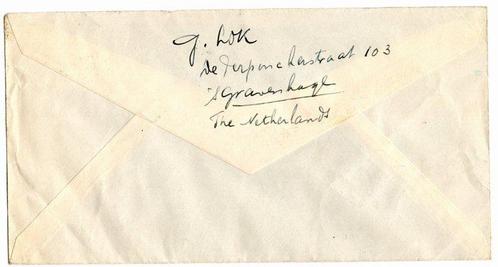 G. Lok
de Perponcherstraat 103
's Gravenhage
The Netherlands